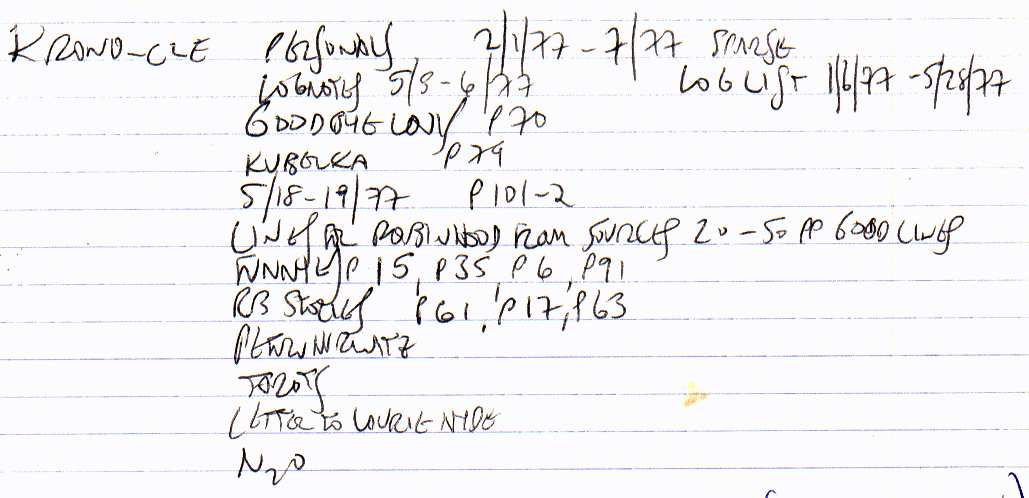 KRONO-CLE PERSONALS, 2/1/77 - 7/77 SPARSE
LOGNOTES 5/3 - 6/77 LOG LIST 1/6/77 - 5/28/77
GOODBYE LOVE P 70
KUBELKA P 79
5/18-19/77 P 101-2
LINES FOR ROBINHOOD FROM SOURCES 20-50 PP GOOD LINES
FUNNIES P 15, P35, P 6, P91
RB STORIES P 61, P17, P63
TAROTS
LETTER TO LAURIE NYDE
N2O